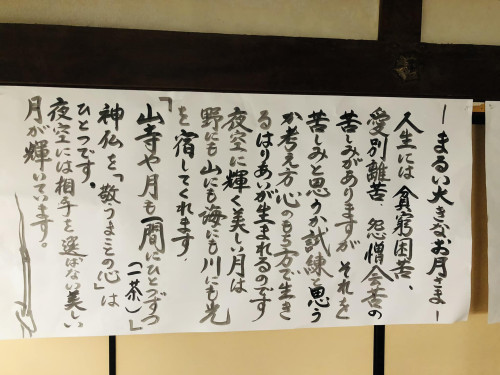 ーまるい大きなお月さまー
人生には貧窮困苦、
愛別離苦、怨憎会苦の
苦しみがありますが それを
苦しみと思うか試練と思う
か考え方心のもち方で生き
るはりあいが生まれるのです
夜空に輝く美しい月は
野にも山にも海にも川にも光
を宿してくれます。
「山寺や月も一間にひとつづつ
(一茶)」
神仏を「敬うまことの心」は
ひとつです。
夜空には相手を選ばない美しい
月が輝いています。